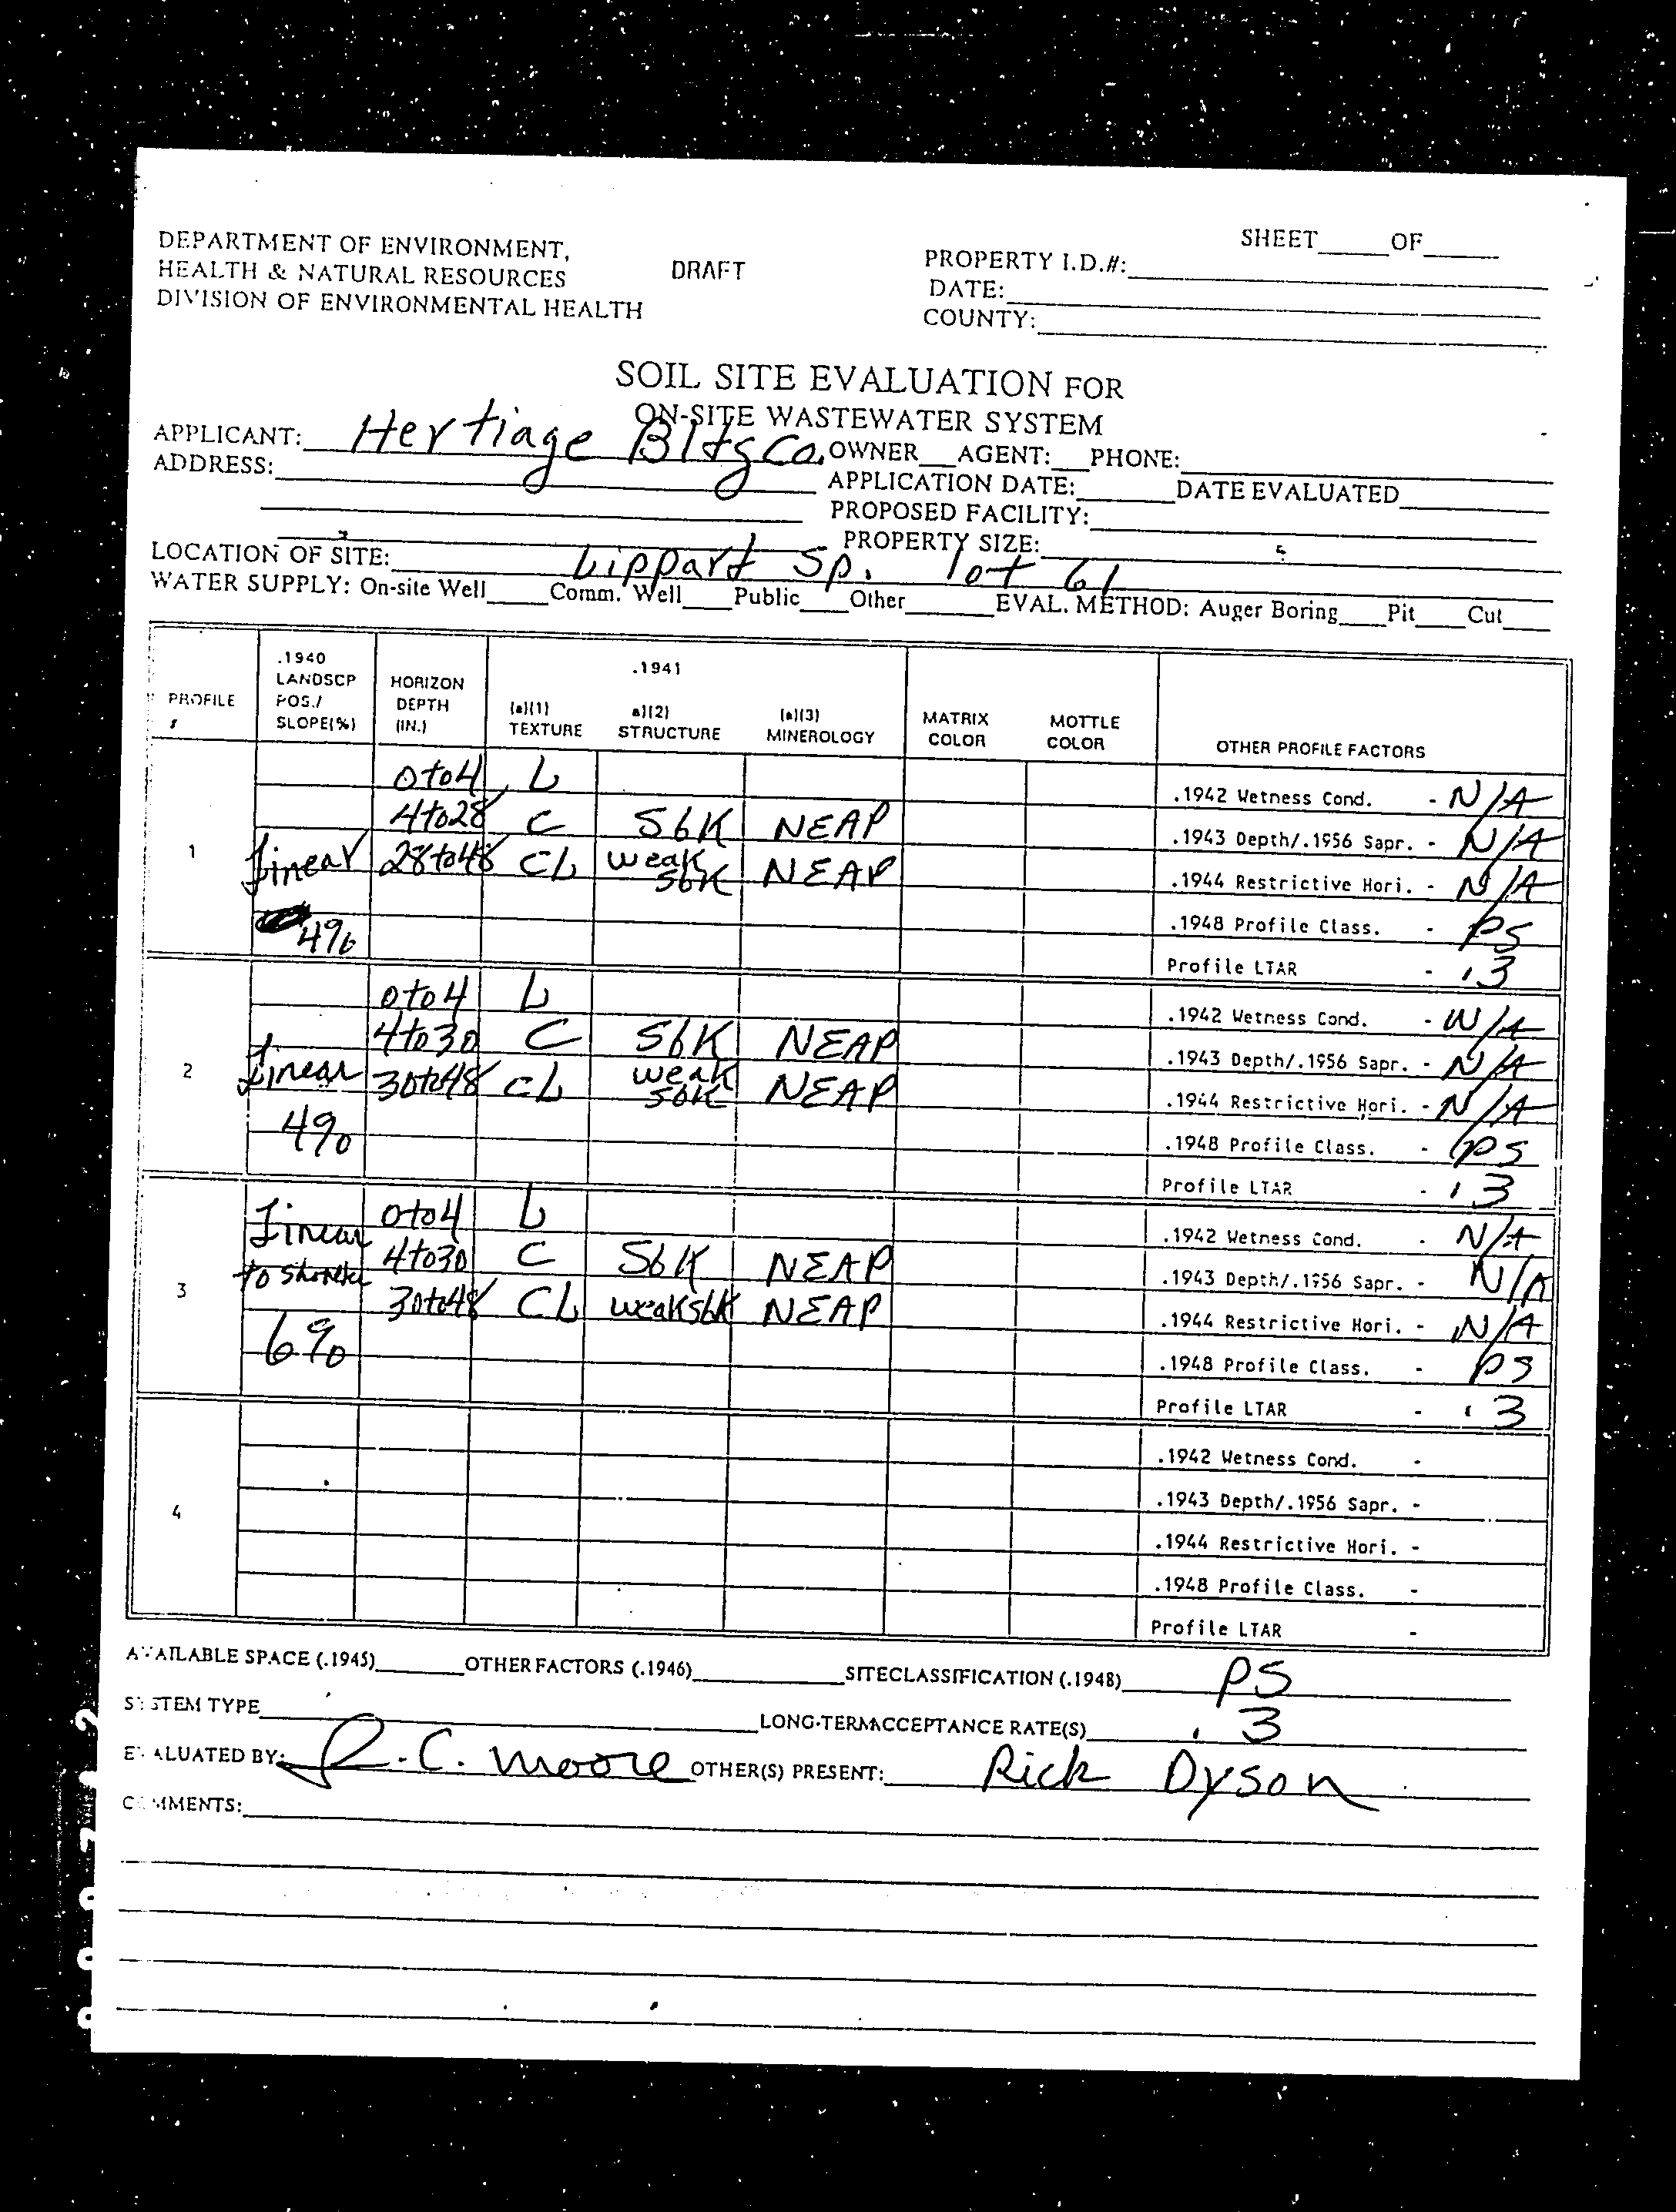 SHEET_____OF_____
DEPARTMENT OF ENVIRONMENT,
HEALTH & NATURAL RESOURCES DRAFT PROPERTY I.D.#:
DIVISION OF ENVIRONMENTAL HEALTH DATE:
COUNTY:
SOIL SITE EVALUATION FOR
ON-SITE WASTEWATER SYSTEM
APPLICANT: Hertiage Bldg Co. OWNER__AGENT:__PHONE:
ADDRESS: APPLICATION DATE:______DATE EVALUATED
PROPOSED FACILITY:
PROPERTY SIZE:
LOCATION OF SITE: Lippard Sp. lot 61
WATER SUPPLY: On-site Well____Comm. Well___Public___Other______EVAL. METHOD: Auger Boring___Pit___Cut___
PROFILE # .1940 LANDSCP POS./ SLOPE(%) HORIZON DEPTH (IN.) .1941 (a)(1) TEXTURE a)(2) STRUCTURE (a)(3) MINEROLOGY MATRIX COLOR MOTTLE COLOR OTHER PROFILE FACTORS
0 to 4 L .1942 Wetness Cond. - N/A
4 to 28 C SbK NEAP .1943 Depth/.1956 Sapr. - N/A
1 Linear 28 to 48 CL weak SbK NEAP .1944 Restrictive Hori. - N/A
4% .1948 Profile Class. - PS
Profile LTAR - .3
0 to 4 L .1942 Wetness Cond. - N/A
4 to 30 C SbK NEAP .1943 Depth/.1956 Sapr. - N/A
2 Linear 30 to 48 CL weak SbK NEAP .1944 Restrictive Hori. - N/A
4% .1948 Profile Class. - PS
Profile LTAR - .3
Linear 0 to 4 L .1942 Wetness Cond. - N/A
to 4 to 30 C SbK NEAP .1943 Depth/.1956 Sapr. - N/A
3 30 to 48 CL weak SbK NEAP .1944 Restrictive Hori. - N/A
6% .1948 Profile Class. - PS
Profile LTAR - .3
.1942 Wetness Cond. -
.1943 Depth/.1956 Sapr. -
4 .1944 Restrictive Hori. -
.1948 Profile Class. -
Profile LTAR -
AVAILABLE SPACE (.1945)______OTHER FACTORS (.1946)______SITECLASSIFICATION (.1948) PS
SYSTEM TYPE______LONG-TERM ACCEPTANCE RATE(S) .3
EVALUATED BY: R.C. Moore OTHER(S) PRESENT: Rick Dyson
COMMENTS: